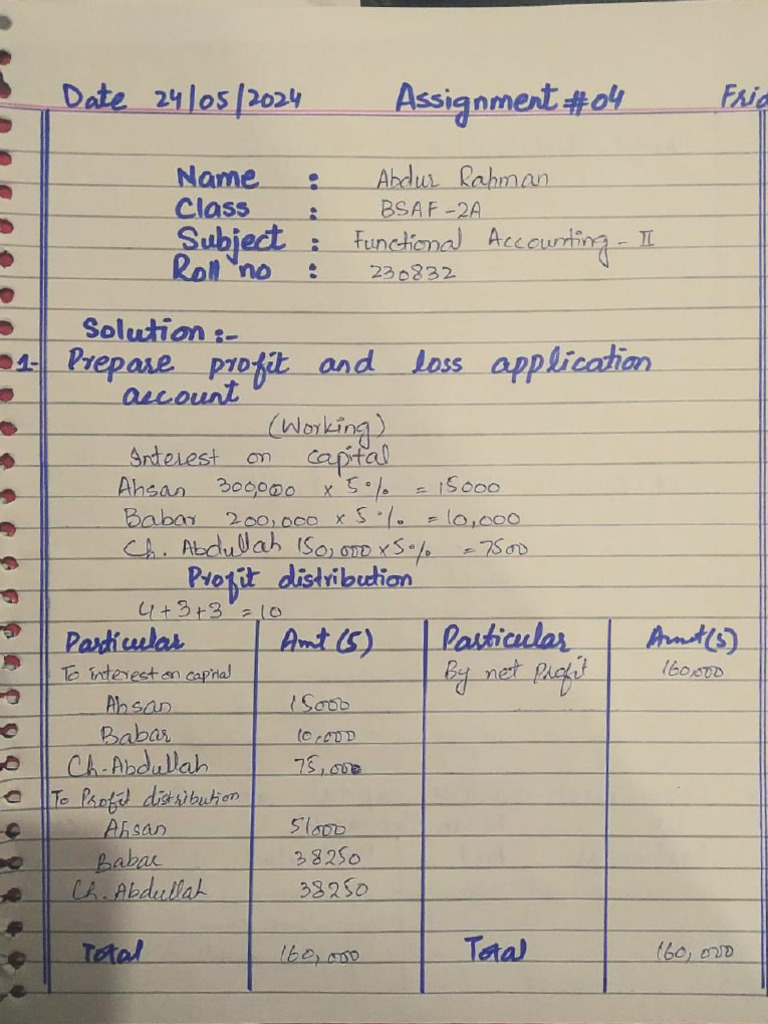 Date 24/05/2024 Assignment #04 Frid
Name : Abdur Rahman
Class : BSAF-2A
Subject : Functional Accounting - II
Roll no : 230832
Solution :-
1- Prepare profit and loss application
account
(Working)
Interest on capital
Ahsan 300,000 x 5% = 15000
Babar 200,000 x 5% = 10,000
Ch. Abdullah 150,000 x 5% = 7500
Profit distribution
4+3+3 = 10
Particular Amt (S) Particular Amt (S)
To interest on capital By net Profit 160,000
Ahsan 15000
Babar 10,000
Ch-Abdullah 75,000
To Profit distribution
Ahsan 51000
Babar 38250
Ch. Abdullah 38250
Total 160,000 Total 160,000